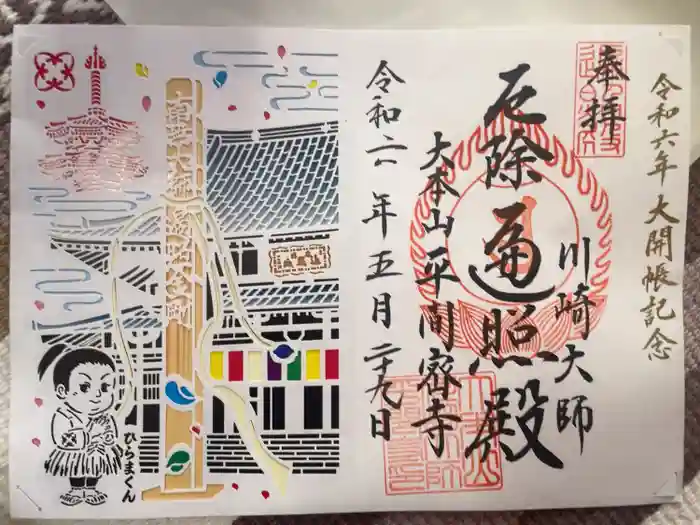 令和六年大開帳記念
奉拝
川崎大師
厄除遍照殿
大本山平間寺
令和六年五月二十九日
ひらまくん